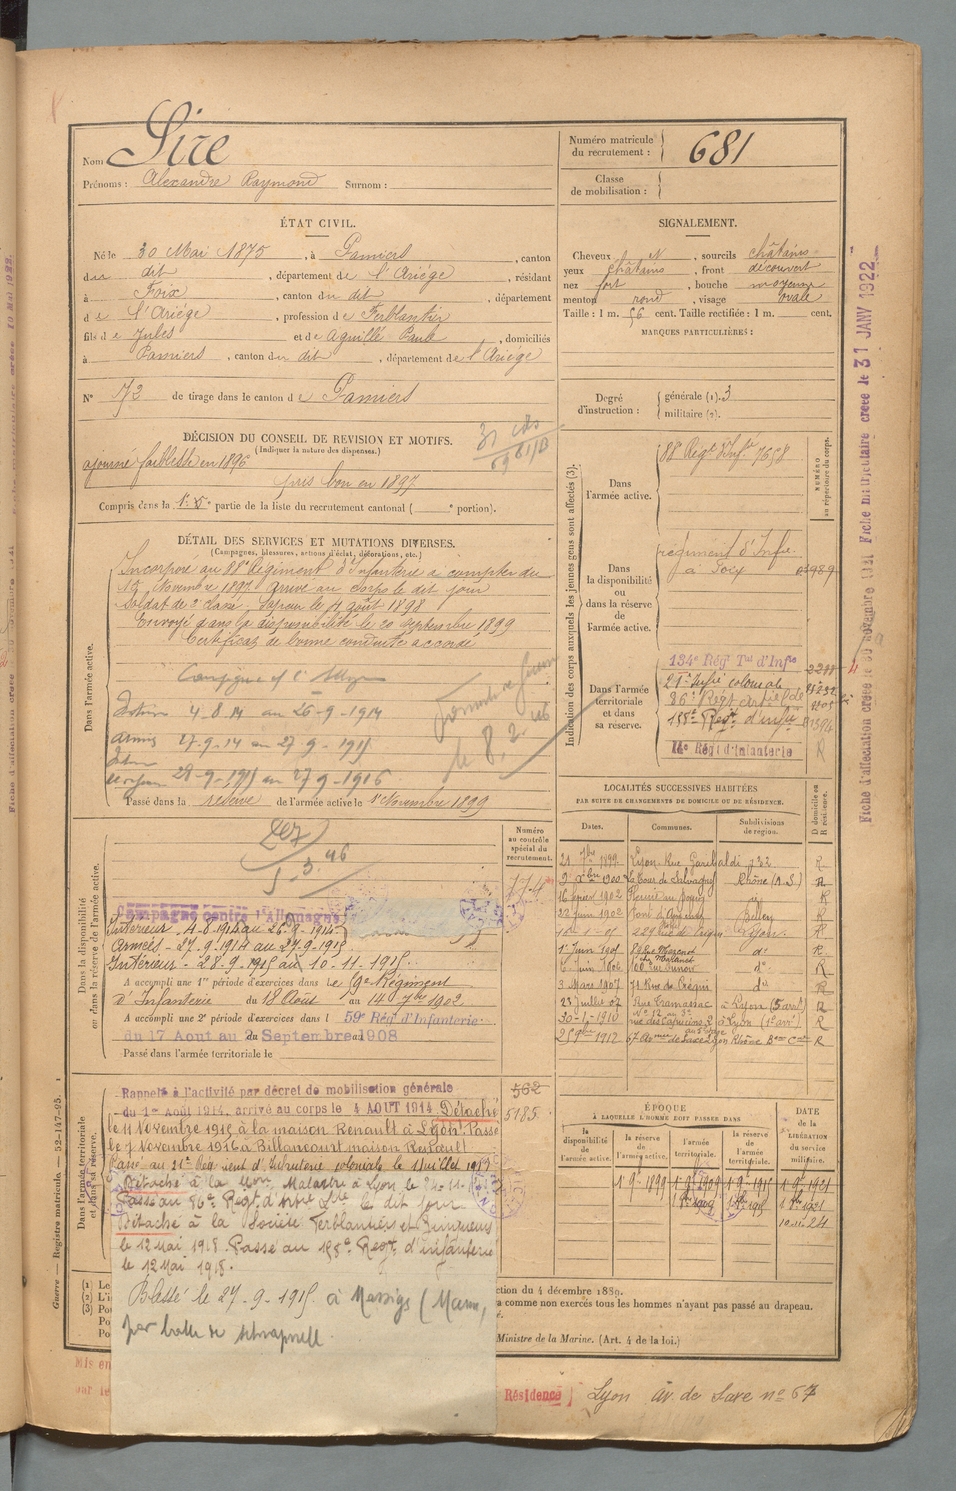 Nom Sire
Prénoms : Alexandre Raymond Surnom :
Numéro matricule du recrutement : 681
Classe de mobilisation :
ÉTAT CIVIL.
Né le 30 Mai 1875, à Pamiers, canton
du dit, département de l'Ariége, résidant
à Foix, canton du dit, département
de l'Ariége, profession de Ferblantier
fils de Jules et de Aguillé Paule, domiciliés
à Pamiers, canton du dit, département de l'Ariége
N° 73 de tirage dans le canton de Pamiers
SIGNALEMENT.
Cheveux et, sourcils châtains
yeux châtains, front découvert
nez fort, bouche moyenne
menton rond, visage ovale
Taille : 1 m. 56 cent. Taille rectifiée : 1 m. cent.
MARQUES PARTICULIÈRES :
Degré d'instruction : générale (1). 3
militaire (2).
DÉCISION DU CONSEIL DE REVISION ET MOTIFS.
(Indiquer la nature des dispenses.)
ajourné faiblesse en 1896
pris bon en 1897
Compris dans la 1re partie de la liste du recrutement cantonal ( portion).
DÉTAIL DES SERVICES ET MUTATIONS DIVERSES.
(Campagnes, blessures, actions d'éclat, décorations, etc.)
Dans l'armée active.
Incorporé au 88e Régiment d'Infanterie à compter du
15 Novembre 1897. Arrivé au corps le dit jour
Soldat de 2e classe. Sapeur le 14 août 1898
Envoyé dans la disponibilité le 20 septembre 1899
Certificat de bonne conduite accordé
4-8-14 au 26-9-1914
Armées 27-9-14 au 27-9-1915
28-9-1915 au 27-9-1916
le 8.2.46
Passé dans la réserve de l'armée active le 1er Novembre 1899
Indication des corps auxquels les jeunes gens sont affectés (3).
NUMÉRO au répertoire du corps.
Dans l'armée active.
88e Régt d'Infie 7658
Dans la disponibilité ou dans la réserve de l'armée active.
régiment d'Infie
à Foix
Dans l'armée territoriale et dans sa réserve.
134e Régt Tal d'Infie
21e Infie coloniale
86e Régt Artie Lde
158e Régt d'Infie
14e Régt d'Infanterie
LOCALITÉS SUCCESSIVES HABITÉES
PAR SUITE DE CHANGEMENTS DE DOMICILE OU DE RÉSIDENCE.
Dates. Communes. Subdivisions de région. D domicile ou R résidence.
21 7bre 1899 Lyon. Rue Garibaldi 232 R
2 Xbre 1900 La Tour de Salvagny Rhône (N.S.) R
22 Juin 1902 Belley R
1er Juin 1905 do R
6 Juin 1906 do R
3 Mars 1907 71 Rue de Créqui do R
23 Juillet 07 Rue Tramassac à Lyon (5 arrt) R
30-1-1910 rue des Capucins 2 à Lyon (1er arrt) R
25 9bre 1912 67 Avenue de Saxe Lyon Rhône R
Dans la disponibilité ou dans la réserve de l'armée active.
Numéro au contrôle spécial du recrutement.
Campagne contre l'Allemagne
Intérieur. 4-8-1914 au 26-9-1914
Armées - 27-9-1914 au 27-9-1915
Intérieur - 28-9-1915 au 10-11-1915
A accompli une 1re période d'exercices dans le 59e Régiment
d'Infanterie du 18 Août au 14 7bre 1902
A accompli une 2e période d'exercices dans l 59e Rég d'Infanterie
du 17 Aout au 2 Septembre 1908
Passé dans l'armée territoriale le
Dans l'armée territoriale et dans sa réserve.
Rappelé à l'activité par décret de mobilisation générale
du 1er Août 1914, arrivé au corps le 4 AOUT 1914 Détaché
le 11 Novembre 1915 à la maison Renault à Lyon. Passé
le 7 Novembre 1916 à Billancourt maison Renault
Passé au 21e Régiment d'Infanterie coloniale le 1 Juillet 1917
Détaché à la Mon Malartre à Lyon le 24-11-
Passé au 86e Régt d'Artie Lde le dit jour
Détaché à la Société Ferblantiers et Zingueurs
le 12 Mai 1918. Passé au 158e Régt d'infanterie
le 12 Mai 1918.
Blessé le 27-9-1915 à Massiges (Marne)
par balle de schrapnell.
562
5185
ÉPOQUE
À LAQUELLE L'HOMME DOIT PASSER DANS
la disponibilité de l'armée active. la réserve de l'armée active. l'armée territoriale. la réserve de l'armée territoriale.
DATE de la LIBÉRATION du service militaire.
1-9-1899 1-9-1909 1-9-1915 1-9-1921
ction du 4 décembre 1889.
a comme non exercés tous les hommes n'ayant pas passé au drapeau.
Ministre de la Marine. (Art. 4 de la loi.)
Résidence Lyon av. de Saxe no 67
Guerre — Registre matricule. — 52-147-95.
Fiche d'affectation créée le 30 novembre 1941 Fiche matriculaire créée le 31 JANV 1922